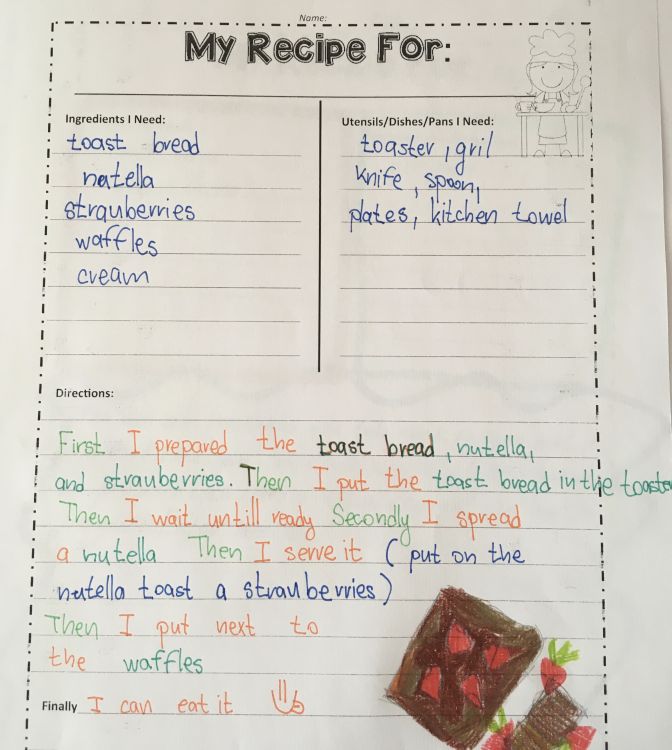 Name:
My Recipe For:
Ingredients I Need:
toast bread
nutella
strauberries
waffles
cream
Utensils/Dishes/Pans I Need:
toaster, gril
knife, spoon,
plates, kitchen towel
Directions:
First I prepared the toast bread, nutella,
and strauberries. Then I put the toast bread in the toaster
Then I wait untill ready Secondly I spread
a nutella Then I serve it (put on the
nutella toast a strauberries)
Then I put next to
the waffles
Finally I can eat it